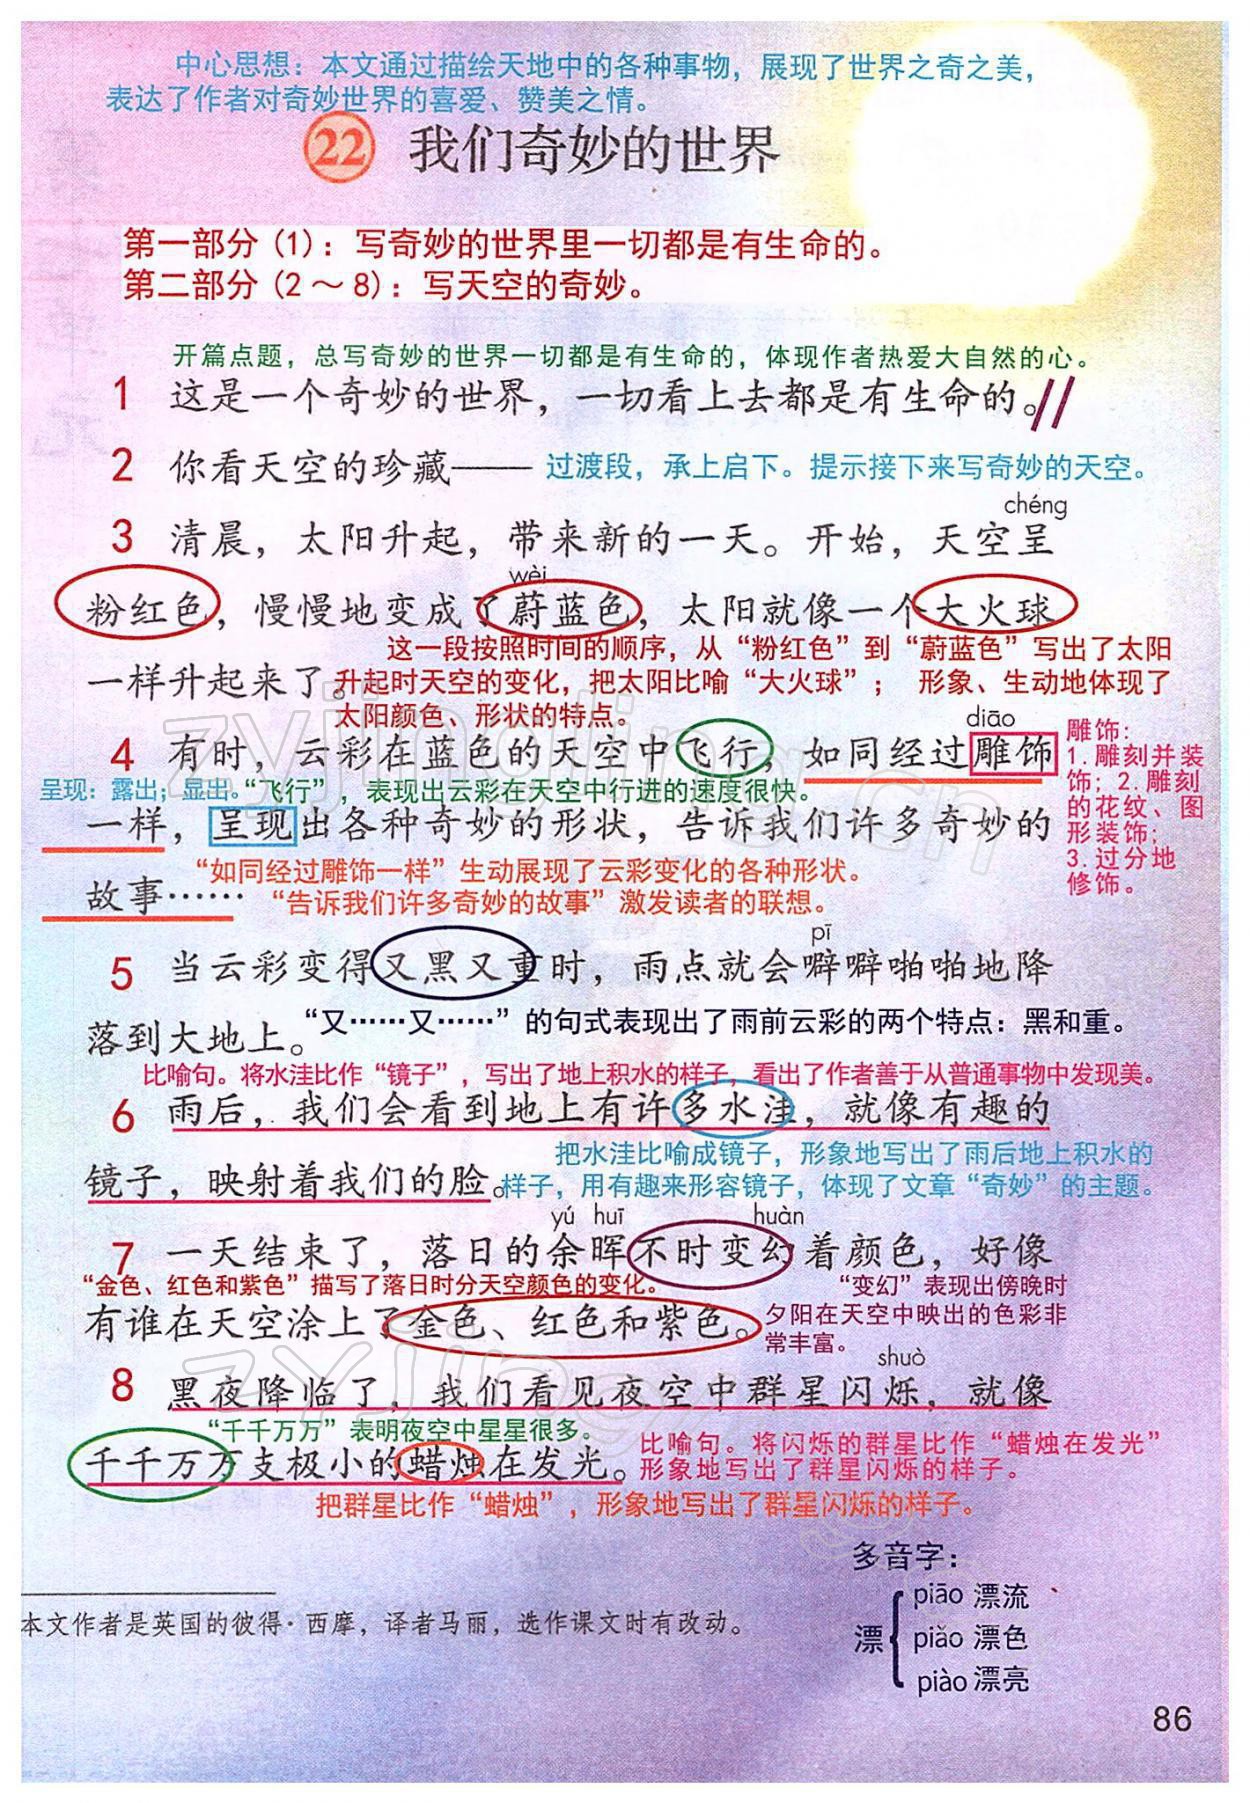 中心思想：本文通过描绘天地中的各种事物，展现了世界之奇之美，
表达了作者对奇妙世界的喜爱、赞美之情。
22 我们奇妙的世界
第一部分（1）：写奇妙的世界里一切都是有生命的。
第二部分（2～8）：写天空的奇妙。
开篇点题，总写奇妙的世界一切都是有生命的，体现作者热爱大自然的心。
1 这是一个奇妙的世界，一切看上去都是有生命的。
2 你看天空的珍藏——过渡段，承上启下。提示接下来写奇妙的天空。
chéng
3 清晨，太阳升起，带来新的一天。开始，天空呈
wèi
粉红色，慢慢地变成了蔚蓝色，太阳就像一个大火球
这一段按照时间的顺序，从“粉红色”到“蔚蓝色”写出了太阳
一样升起来了。升起时天空的变化，把太阳比喻“大火球”； 形象、生动地体现了
太阳颜色、形状的特点。
diāo
4 有时，云彩在蓝色的天空中飞行，如同经过雕饰
雕饰：
1. 雕刻并装
饰；2. 雕刻
的花纹、图
形装饰；
3. 过分地
修饰。
呈现：露出；显出。“飞行”，表现出云彩在天空中行进的速度很快。
一样，呈现出各种奇妙的形状，告诉我们许多奇妙的
“如同经过雕饰一样”生动展现了云彩变化的各种形状。
故事……“告诉我们许多奇妙的故事”激发读者的联想。
pī
5 当云彩变得又黑又重时，雨点就会噼噼啪啪地降
落到大地上。“又……又……”的句式表现出了雨前云彩的两个特点：黑和重。
比喻句。将水洼比作“镜子”，写出了地上积水的样子，看出了作者善于从普通事物中发现美。
6 雨后，我们会看到地上有许多水洼，就像有趣的
把水洼比喻成镜子，形象地写出了雨后地上积水的
镜子，映射着我们的脸。样子，用有趣来形容镜子，体现了文章“奇妙”的主题。
yú huī huàn
7 一天结束了，落日的余晖不时变幻着颜色，好像
“金色、红色和紫色”描写了落日时分天空颜色的变化。
“变幻”表现出傍晚时
夕阳在天空中映出的色彩非
常丰富。
有谁在天空涂上了金色、红色和紫色。
shuò
8 黑夜降临了，我们看见夜空中群星闪烁，就像
“千千万万”表明夜空中星星很多。
千千万万支极小的蜡烛在发光。
比喻句。将闪烁的群星比作“蜡烛在发光”
形象地写出了群星闪烁的样子。
把群星比作“蜡烛”，形象地写出了群星闪烁的样子。
多音字：
漂
piāo 漂流
piǎo 漂色
piào 漂亮
本文作者是英国的彼得·西摩，译者马丽，选作课文时有改动。
86
zyjingling.cn